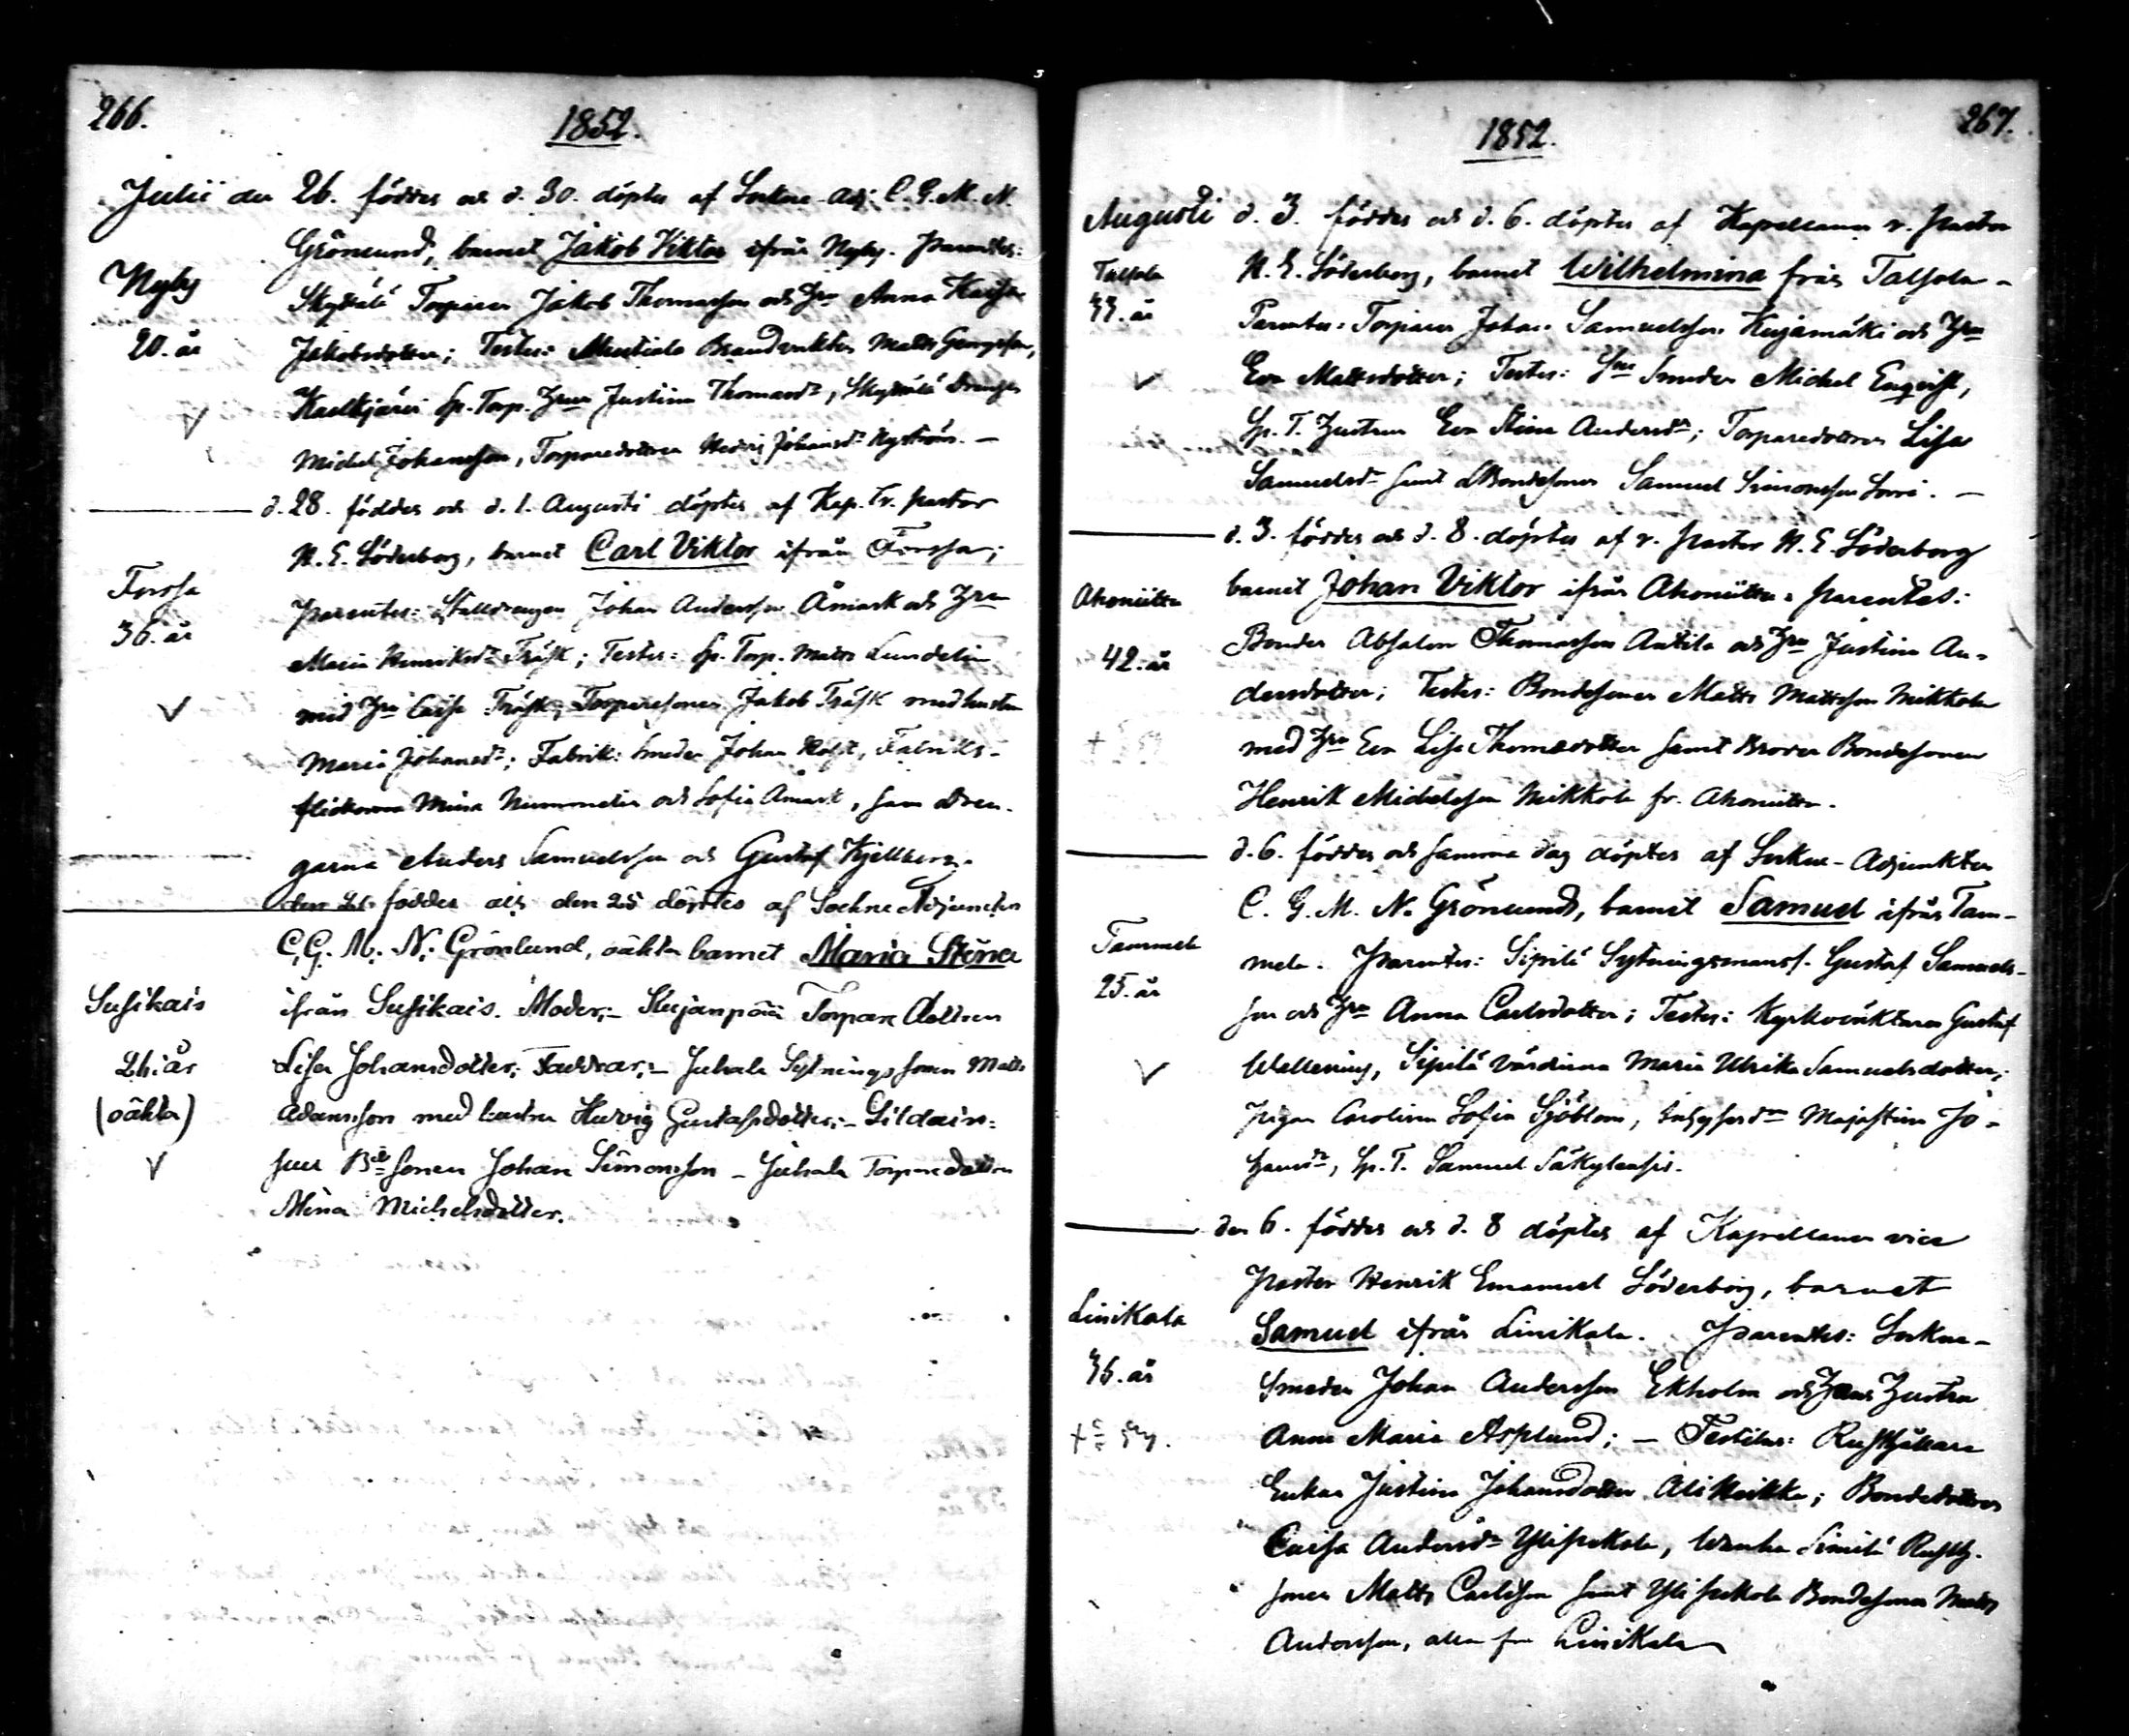 266.
1852.
Julii den 26. föddes och d. 30. döptes af Sockne-Adj: C. G. M. N.
Grönlund, barnet Jakob Viktor ifrån Nyby. Parentes:
Nyby
Torparen Jakob Thomasson och Hu Anna Kajsa
20. år
Jakobsdotter; Testes: Brandvakten Matts Georgsson,
Sp. Torp. Justina Thomasdr, Drengen
Michel Johansson, Torparedottren Hedvig Johansdr Nyström. —
d. 28. föddes och d. 1. Augusti döptes af Kap. v. pastor
H. E. Söderborg, barnet Carl Viktor ifrån Forssa;
Forssa
Parentes: Stalldrengen Johan Andersson Åmark och Hu
36. år
Maria Henriksdr Träsk; Testes: Sp. Torp. Matts Lundelin
med Hu Caisa Träsk, Torparesonen Jakob Träsk med hustru
Maria Johansdr; Fabrik: Smeden Johan, Fabriks-
flickorna Mina Nummelin och Sofia Åmark, sam Dren-
garna Anders Samuelsson och Gustaf Kjellberg.
den 21 föddes och den 25 döptes af Sockne Adjuncten
C. G. M. N. Grönlund, oäkta barnet Maria Stina
Susikais
ifrån Susikais. Moder:- Kujanpää Torpare Dottren
21. år
Lisa Johansdotter: Faddrar:- Juhala Sytnings sonen Matts
(oäkta)
Adamsson med hustru Hedvig Gustafsdotter:-
Bde sonen Johan Simonsson - Juhala Torparedottren
Mina Michelsdotter.
267.
1852.
Augusti d. 3. föddes och d. 6. döptes af Kapellanen v. Pastor
Talsola
H. E. Söderborg, barnet Wilhelmina från Talsola -
33. år
Parentes: Torparen Johan Samuelsson Kujamäki och Hu
Eva Mattsdotter; Testes: Smeden Michel Enqvist,
Sp. T. Hustrun Eva Stina Andersdr; Torparedottren Lisa
Samuelsdr samt Bondesonen Samuel Simonsson Sorri. —
d. 3. föddes och d. 8. döptes af v. Pastor H. E. Söderborg
Ahoniitta
barnet Johan Viktor ifrån Ahoniitta. Parentes:
Bonden Absalon Thomasson Antila och Hu Justina An-
42. år
dersdotter; Testes: Bondesonen Matts Mattsson Mikkola
med Hu Eva Lisa Thomasdotter samt Broder Bondesonen
Henrik Michelsson Mikkola fr. Ahoniitta.
d. 6. föddes och samma dag döptes af Sockne-Adjunkten
C. G. M. N. Grönlund, barnet Samuel ifrån Tam-
Tammela
mela. Parentes: Sipilä Sytningsmans s. Gustaf Samuels-
25. år
son och Hu Anna Carlsdotter; Testes: Kyrkoväktaren Gustaf
Wallening, Sipilä Värdinna Maria Ulrika Samuelsdotter;
Pigan Carolina Sofia Sjöblom, Majastina Jo-
hansdr, Sp. T. Samuel Säkylensis.
den 6. föddes och d. 8 döptes af Kapellanen vice
Pastor Henrik Emanuel Söderborg, barnet
Liiikala
Samuel ifrån Liiikala. Parentes: Sockne-
36. år
Smeden Johan Andersson Ekholm och hans Hustru
Anna Maria Asplund; — Testes: Rusthållare
Enkan Justina Johansdotter Alikeikka; Bondedottren
Caisa Andersdr Ylipekola, Wanha Similä Rusth.
sonen Matts Carlsson samt Ylipekola Bondesonen Matts
Andersson, alla fr Liiikala